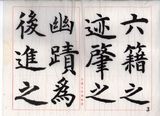 六籍之
迹肇之
幽蹟為
後進之